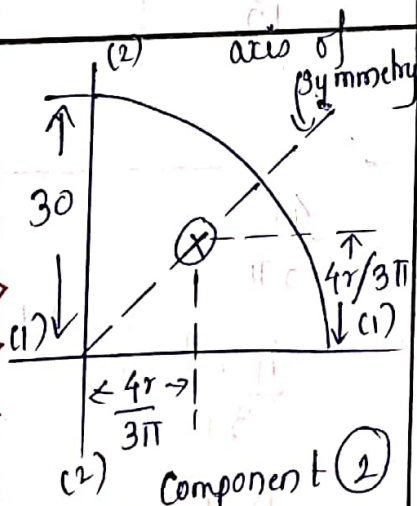 (2)
axis of
Symmetry
30
4r/3π
(1)
(1)
4r
3π
(2)
Component 2